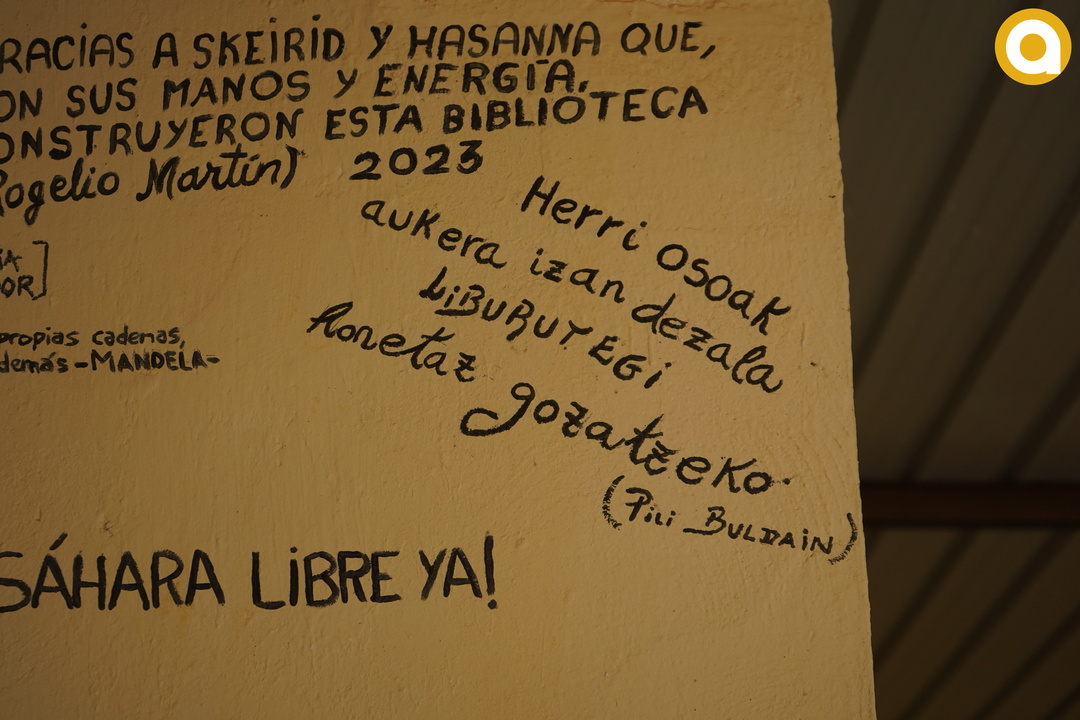 RACIAS A SKEIRID Y HASANNA QUE,
ON SUS MANOS Y ENERGÍA,
ONSTRUYERON ESTA BIBLIOTECA
Rogelio Martín) 2023
Herri osoak
aukera izan dezala
LIBURUTEGI
honetaz gozatzeko.
(Pili BULDAIN)
IA
OR]
propias cadenas,
demás - MANDELA-
SÁHARA LIBRE YA!
a